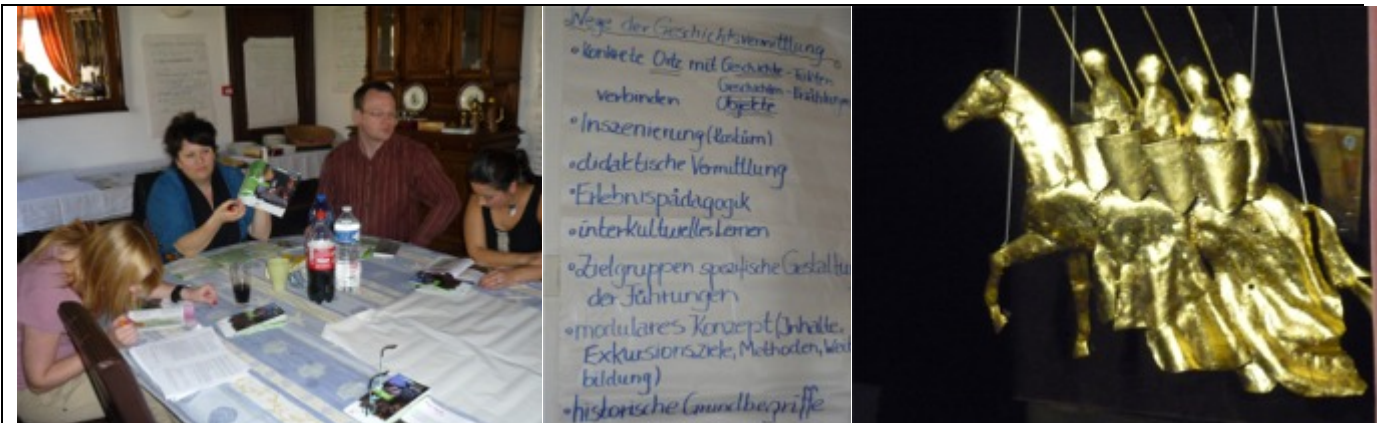 Wege der Geschichtsvermittlung
• konkrete Orte mit Geschichte - Fakten
Geschichten - Erzählungen
verbinden Objekte
• Inszenierung (Kostüm)
• didaktische Vermittlung
• Erlebnispädagogik
• interkulturelles Lernen
• Zielgruppen spezifische Gestaltu
der Führungen
• modulares Konzept (Inhalte,
Exkursionsziele, Methoden, Wei
bildung)
• historische Grundbegriffe